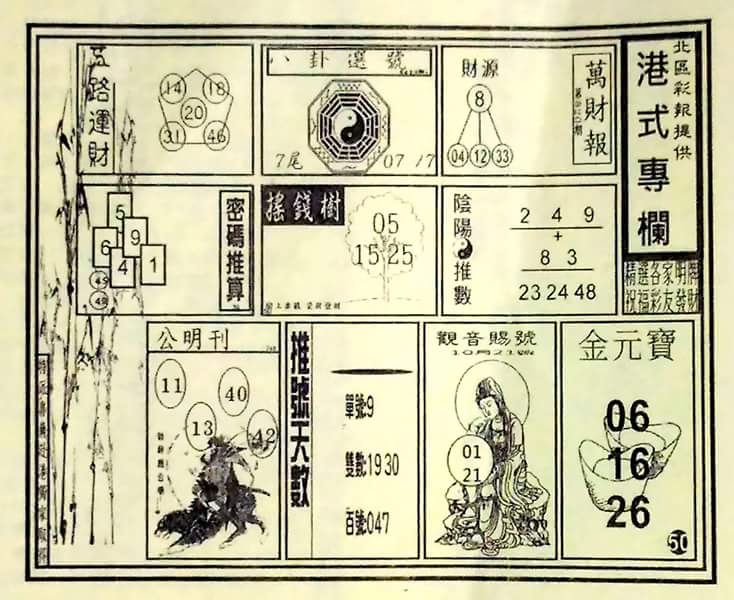 北區彩報提供
港式專欄
精選各家明牌
祝福彩友發財
萬財報
財源
8
04 12 33
八卦選號
7尾 07 17
五路運財
14 18
20
31 46
陰陽推數
2 4 9
+
8 3
23 24 48
搖錢樹
05
15 25
密碼推算
5
6 9
4 1
49
48
金元寶
06
16
26
50
觀音賜號
10月21號
01
21
推號天數
單號9
雙數1930
百號047
公明刊
11 40
13 42